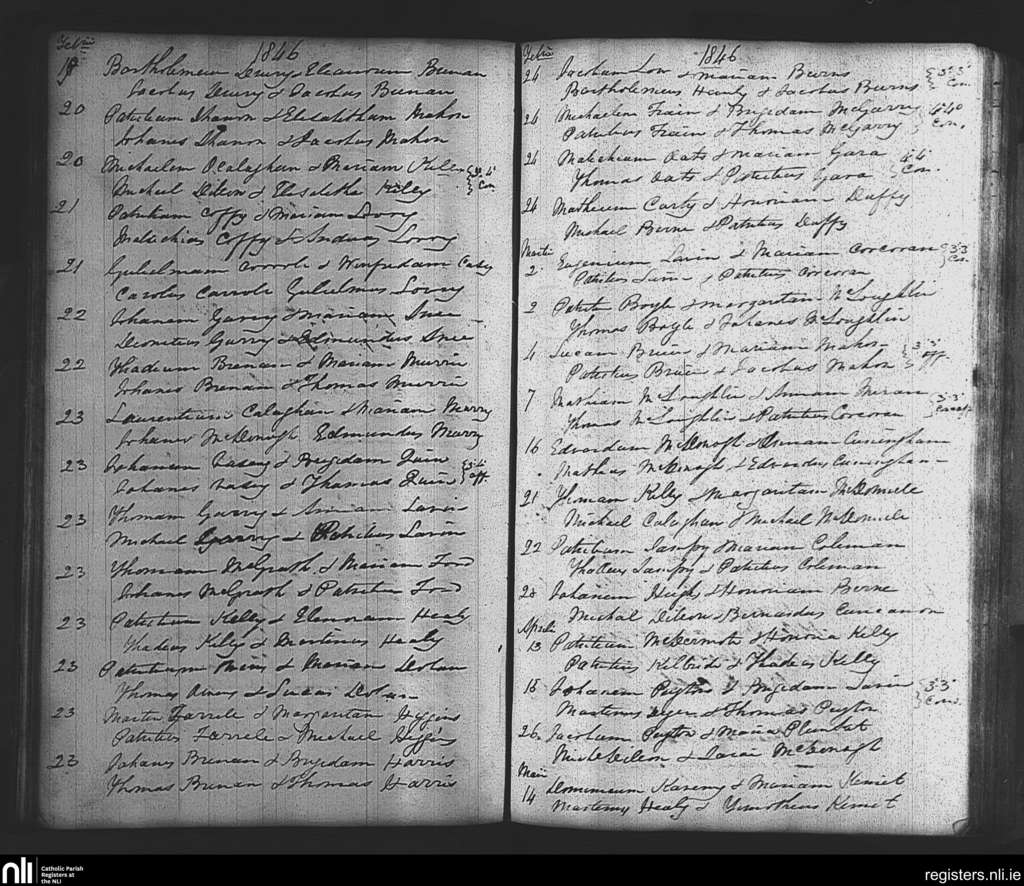 Febrii
1846
19 Bartholemeum Drury & Eleanoram Brenan
Jacobus Drury & Jacobus Brenan
20 Patritium Shanon & Elisabetham Mahon
Johanes Shanon & Jacobus Mahon
20 Michaelem OCalaghan & Mariam Kelly 3d 4th Con.
Michael Dillon & Elisabetha Kelly
21 Patritium Coffy & Mariam Lowry
Malachias Coffy & Andreas Lowry
21 Gulielmum Corrole & Winfridam
Carolus Carrole Gulielmus Lowry
22 Johanem Garry & Mariam
Dionitius Garry & Edmundus
22 Thadeum Brenan & Mariam Murrin
Johanes Brenan & Thomas Murrin
23 Laurentium Calaghan & Mariam Marry
Johanes McDonogh Edmundus Marry
23 Johanem Casey & Brigidam Quin
Johanes Casey & Thomas Quin 3d 4th aff.
23 Thomam Garry & Lavin
Michael Garry & Patritius Lavin
23 Thomam McGrath & Mariam Ford
Johanes McGrath & Patritius Ford
23 Patritium Kelly & Elenoram Healy
Thadeus Kelly & Martinus Healy
23 Patritium & Mariam Dolan
Thomas & Lucas Dolan
23 Martin Farrele & Margaritam Higgins
Patritius Farrele & Michael Higgins
23 Johanes Brenan & Brigidam Harris
Thomas Brenan & Thomas Harris
Febrii
1846
24 Jacobum Low & Mariam Burns 3d 3d Con.
Bartholemeus Healy & Jacobus Burns
24 Michaelem Frain & Brigidam McGarry 4 Con.
Patritius Frain & Thomas McGarry
24 Malichium Oats & Mariam Gara 4 4 Con.
Thomas Oats & Patritius Gara
24 Matheum Carty & Honoriam Duffy
Michael Birne & Patritius Duffy
Martii
2 Eugenium Lavin & Mariam Corcoran 3 3 Con.
Patritius & Patritius Corcoran
2 Patritm Boyle & Margaritam McLoughlin
Thomas Boyle & Johanes McLoughlin
4 Lucam Brien & Mariam Mahon 3 3 aff.
Patritius Brien & Jacobus Mahon
7 Mathiam McLoughlin & Annam 3 3
Thomas McLoughlin & Patritius Corcoran
16 Edwardum McDonogh & Annam Cuningham
Mathias McDonogh & Edwardus Cuningham
21 Thomam Kelly & Margaritam McDonnele
Michael Calaghan & Michael McDonnele
22 Patritium & Mariam Coleman
& Patritius Coleman
28 Johanem & Honoriam Birne
Michal Dillon & Bernardus Concanon
Aprilii
13 Patritium McDermott & Honoria Kelly
Patritius Kilbride & Thadeus Kelly
18 Johanem Peyton & Brigidam Lavin 3 3 Con.
Martinus Dyer & Thomas Peyton
26 Jacobum Peyton & Maria Plunket
& McDonogh
Maii
14 Dominicum Kaveny & Mariam Kemet
Martinus Healy & Timotheus Kemet
nli
Catholic Parish
Registers at
the NLI
registers.nli.ie